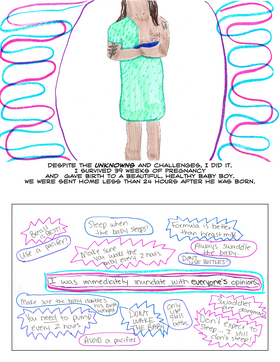 DESPITE THE UNKNOWNS AND CHALLENGES, I DID IT.
I SURVIVED 39 WEEKS OF PREGNANCY
AND GAVE BIRTH TO A BEAUTIFUL, HEALTHY BABY BOY.
WE WERE SENT HOME LESS THAN 24 HOURS AFTER HE WAS BORN.
Breast is best!
Sleep when
the baby sleeps!
Formula is better
than breastmilk
Use a pacifier!
Make sure
you wake the
baby every 2 hours
Always swaddle
the baby.
DON'T
USE BOTTLES!
I was immediately inundate with everyone's opinions.
Make sure the baby
Only
use glass
bottles.
Swaddles
are
You need to pump
every 2 hours
DON'T
WAKE
THE BABY!
Don't expect to
sleep...
Avoid a pacifier!